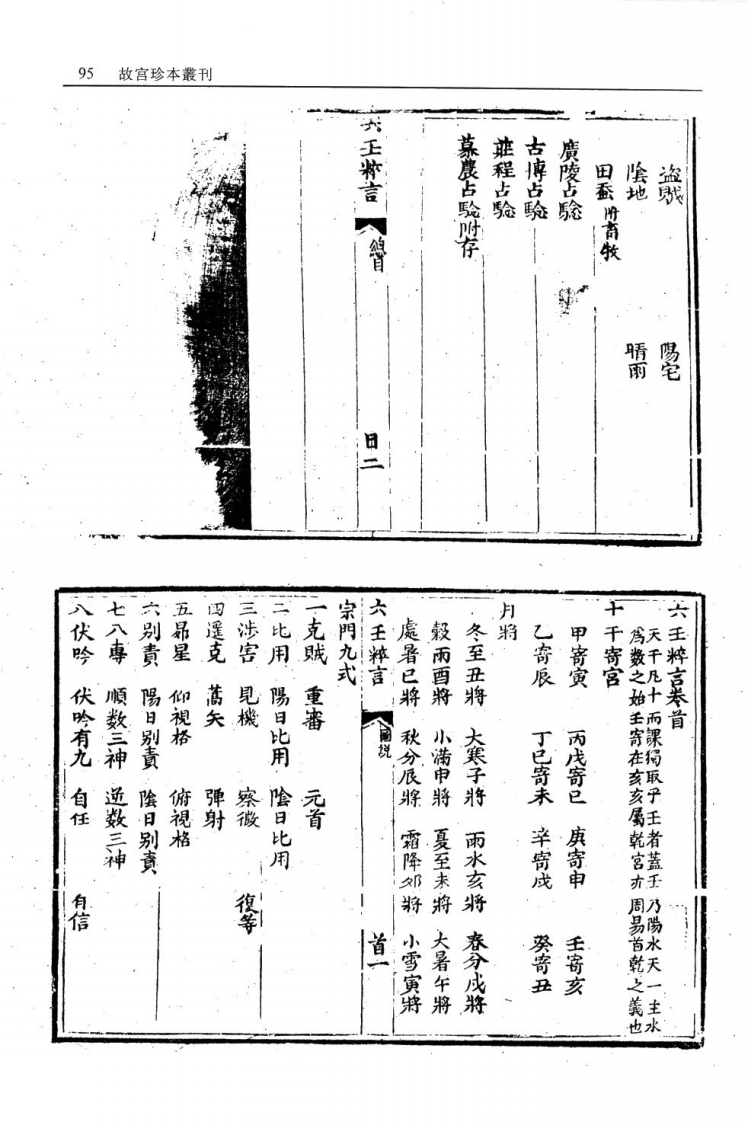 95 故宫珍本叢刊
盜賊 陽宅
陰地 晴雨
田蚕附畜牧
廣陵占驗
古博占驗
莊程占驗
慕農占驗附存
六壬粹言 總目 目二
六壬粹言卷首
天干凡十而課獨取乎壬者蓋壬乃陽水天一生水
爲數之始壬寄在亥亥屬乾宮亦周易首乾之義也
十干寄宮
甲寄寅 丙戊寄巳 庚寄申 壬寄亥
乙寄辰 丁己寄未 辛寄戌 癸寄丑
月將
冬至丑將 大寒子將 雨水亥將 春分戌將
穀雨酉將 小滿申將 夏至未將 大暑午將
處暑巳將 秋分辰將 霜降卯將 小雪寅將
六壬粹言 圖説 首一
宗門九式
一克賊 重審 元首
二比用 陽日比用 陰日比用
三涉害 見機 察微 復等
四遥克 蒿矢 彈射
五昴星 仰視格 俯視格
六别責 陽日别責 陰日别責
七八專 順数三神 逆数三神
八伏吟 伏吟有九 自任 自信